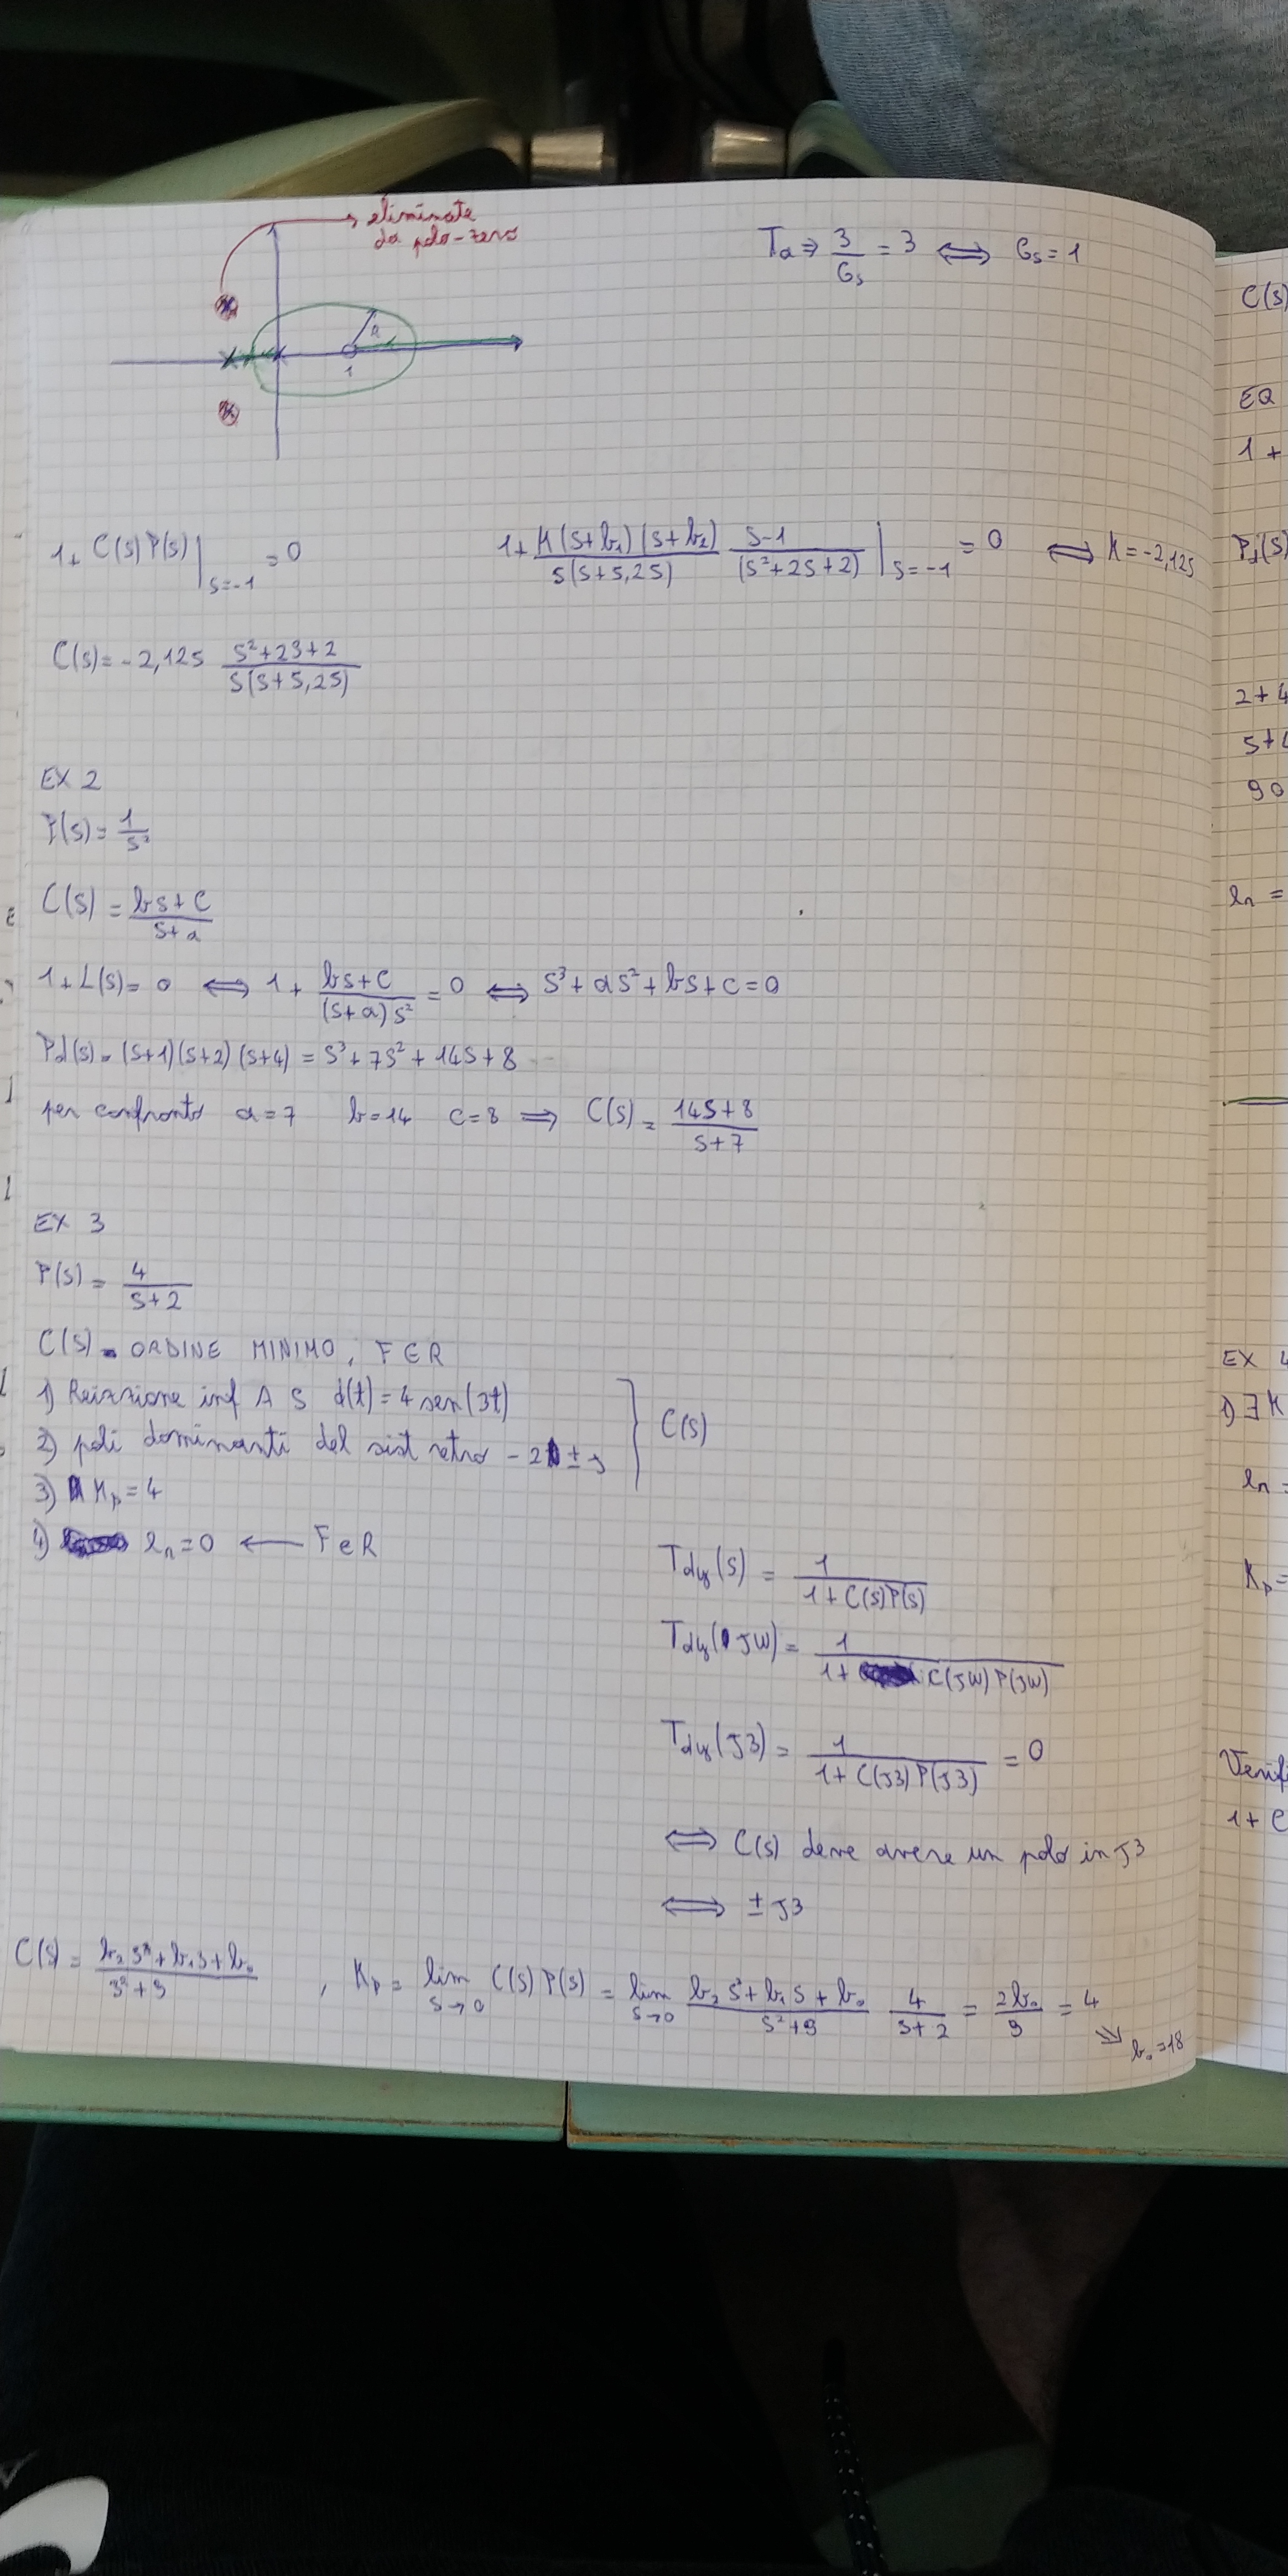 eliminate
da polo-zero
Ta ⇒ 3/Gs = 3 ⟺ Gs = 1
R
1
1 + C(s)P(s)|s=-1 = 0
1 + K(s+b₁)(s+b₂)/s(s+5,25) · s-1/(s²+2s+2)|s=-1 = 0 ⟺ K = -2,125
C(s) = -2,125 s²+2s+2/s(s+5,25)
EX 2
P(s) = 1/s²
C(s) = bs+c/s+a
1 + L(s) = 0 ⟺ 1 + bs+c/(s+a)s² = 0 ⟺ s³+as²+bs+c=0
Pd(s) = (s+1)(s+2)(s+4) = s³+7s²+14s+8
per confronto a=7 b=14 c=8 ⟹ C(s) = 14s+8/s+7
EX 3
P(s) = 4/s+2
C(s) = ORDINE MINIMO, F∈R
1) Reiezione inf A S d(t) = 4 sen(3t)
2) poli dominanti del sist retro -2 ± j
C(s)
3) Kp = 4
4) en=0 ← F∈R
Tdy(s) = 1/1+C(s)P(s)
Tdy(jw) = 1/1+C(jw)P(jw)
Tdy(j3) = 1/1+C(j3)P(j3) = 0
⟺ C(s) deve avere un polo in j3
⟺ ± j3
C(s) = b₂s²+b₁s+b₀/s²+9 , Kp = lim s→0 C(s)P(s) = lim s→0 b₂s²+b₁s+b₀/s²+9 · 4/s+2 = 2b₀/9 = 4
⇒ b₀=18
C(s)
EQ
1 +
Pd(s)
2+4
90
en =
EX 4
1) ∃ K
en =
Kp =
1 + C